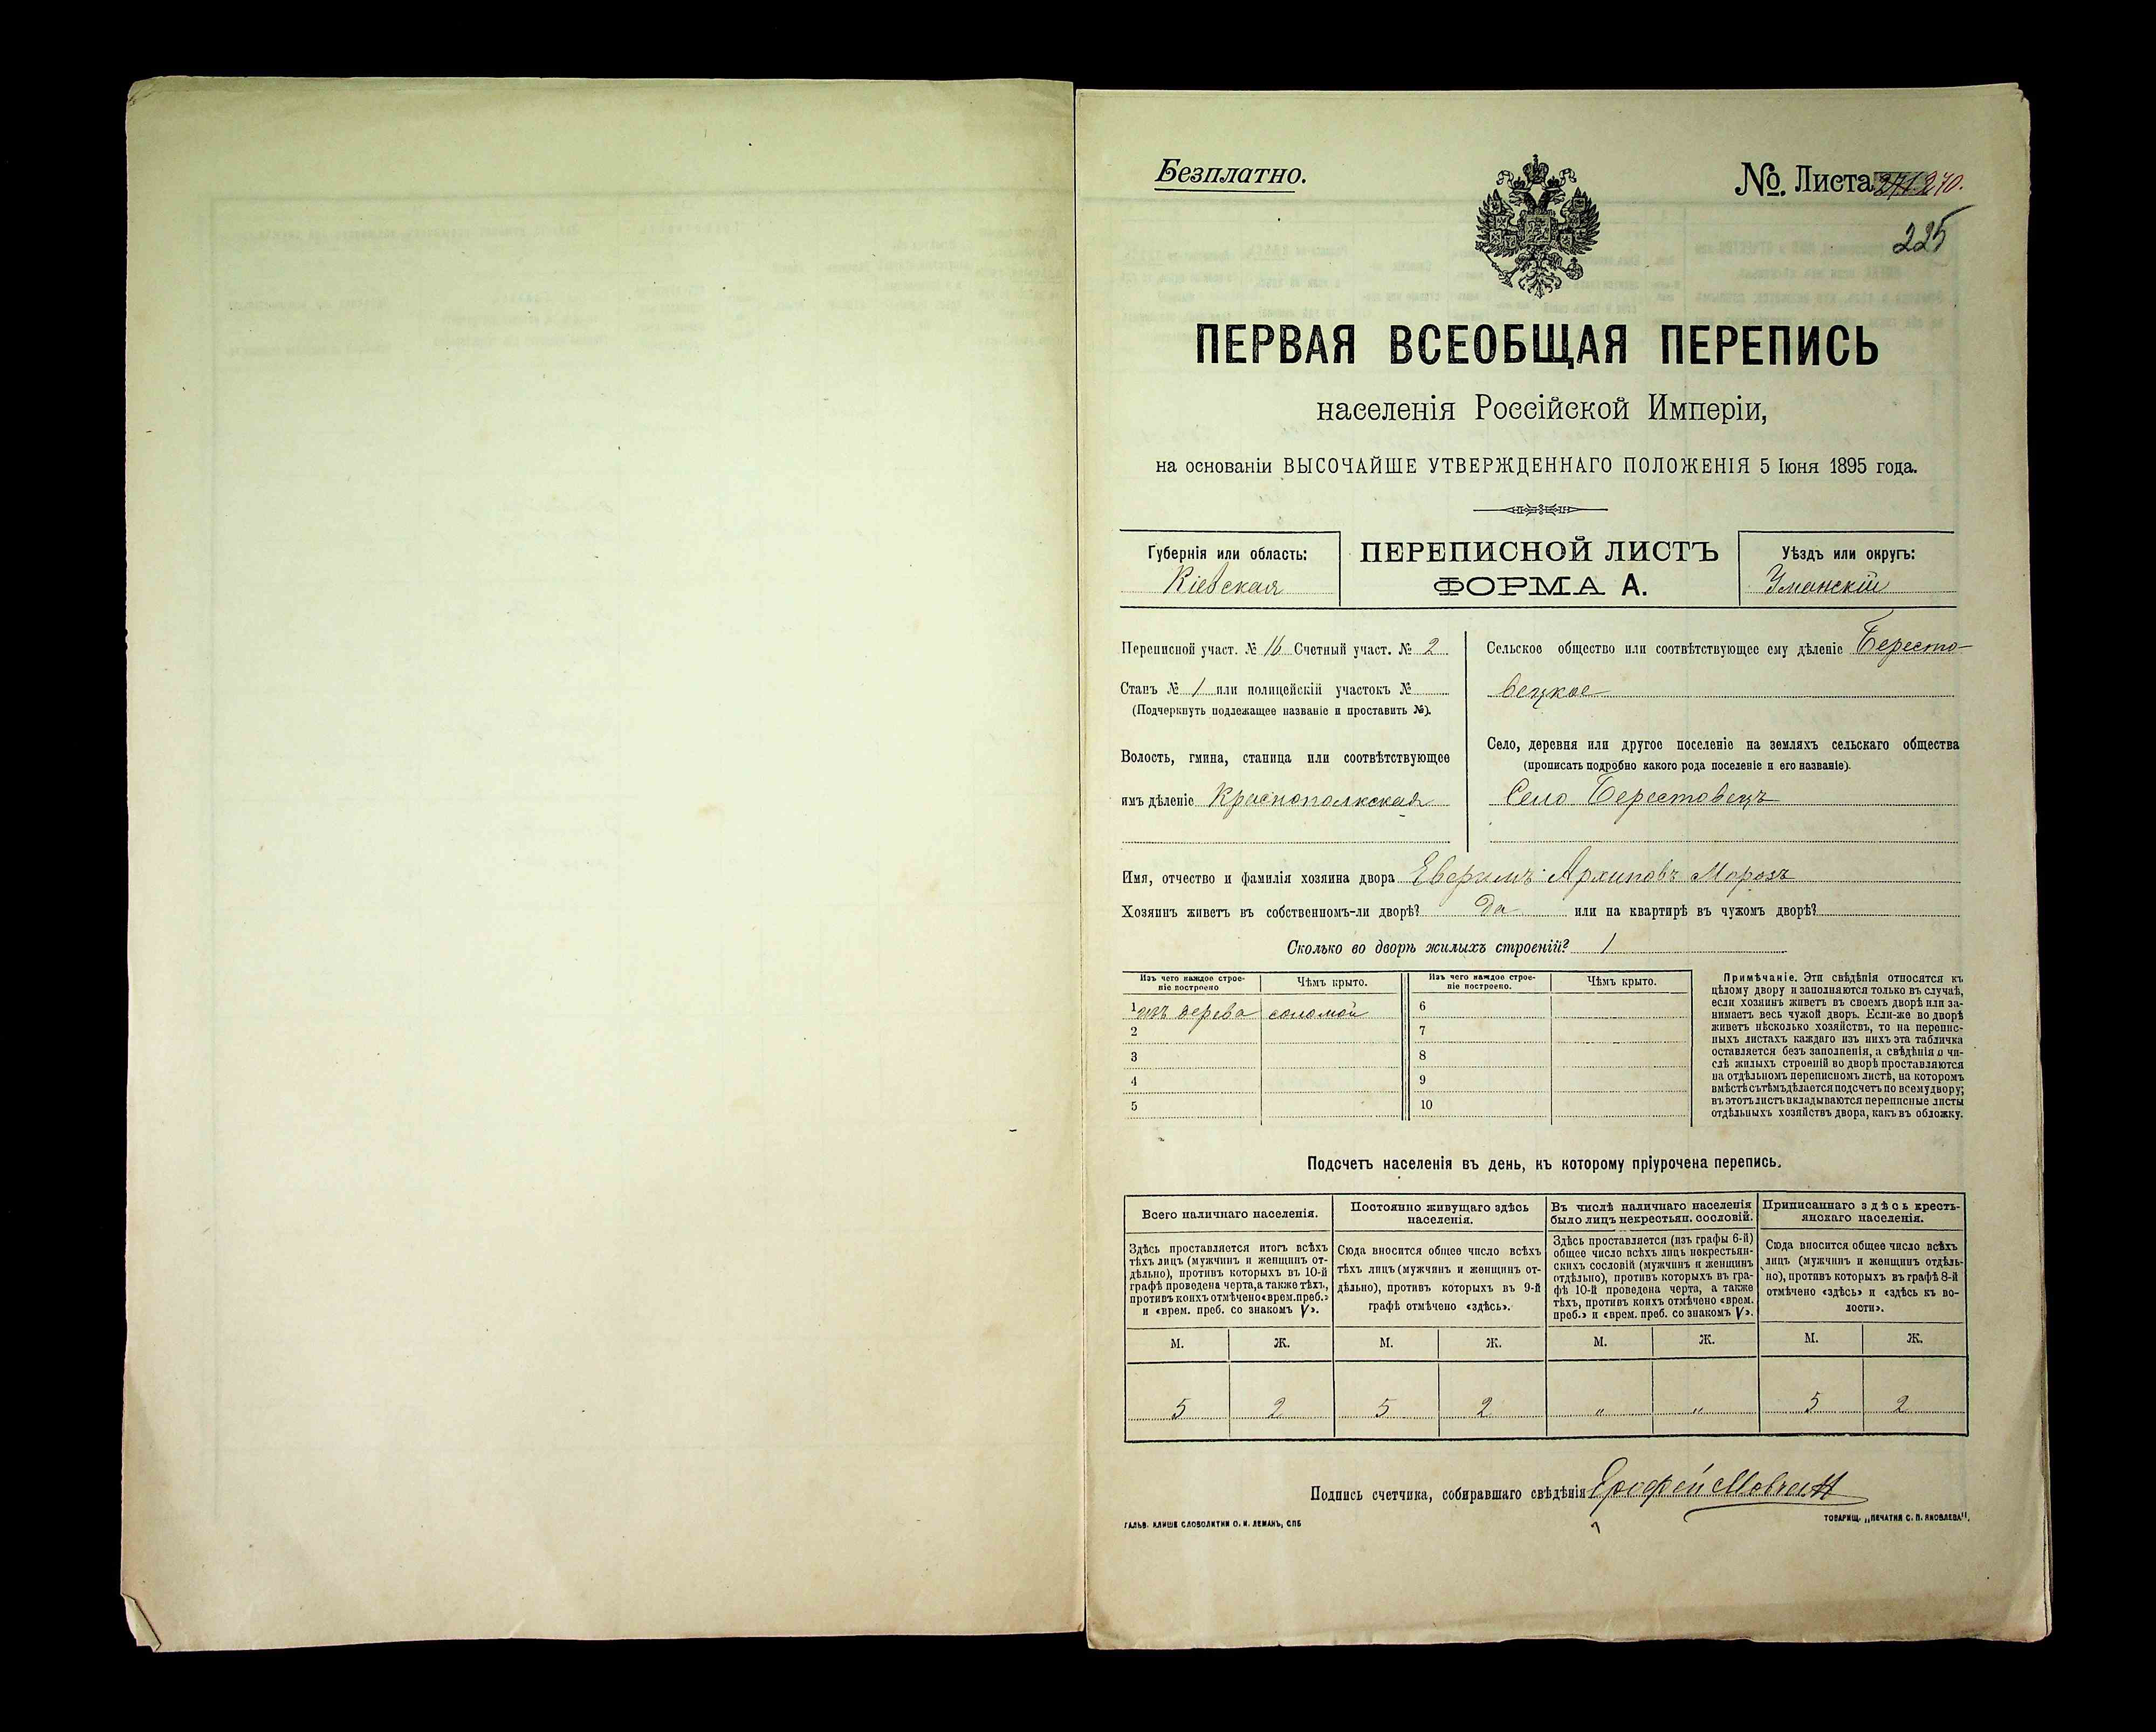 Безплатно.
№. Листа 240.
225
ПЕРВАЯ ВСЕОБЩАЯ ПЕРЕПИСЬ
населенія Россійской Имперіи,
на основаніи ВЫСОЧАЙШЕ УТВЕРЖДЕННАГО ПОЛОЖЕНІЯ 5 Іюня 1895 года.
Губернія или область:
Кіевская
ПЕРЕПИСНОЙ ЛИСТЪ
ФОРМА А.
Уѣздъ или округъ:
Уманскій
Переписной участ. № 16 Счетный участ. № 2
Станъ № 1 или полицейскій участокъ №
(Подчеркнуть подлежащее названіе и проставить №).
Волость, гмина, станица или соотвѣтствующее
имъ дѣленіе Краснополкская
Сельское общество или соотвѣтствующее ему дѣленіе Бересто-
вецкое
Село, деревня или другое поселеніе на земляхъ сельскаго общества
(прописать подробно какого рода поселеніе и его названіе).
Село Берестовецъ
Имя, отчество и фамилія хозяина двора Евфимъ Архиповъ Морозъ
Хозяинъ живетъ въ собственномъ-ли дворѣ? Да или на квартирѣ въ чужомъ дворѣ?
Сколько во дворѣ жилыхъ строеній? 1
Изъ чего каждое строе-
ніе построено
Чѣмъ крыто.
Изъ чего каждое строе-
ніе построено.
Чѣмъ крыто.
1 изъ дерева соломой
2
3
4
5
6
7
8
9
10
Примѣчаніе. Эти свѣдѣнія относятся къ
цѣлому двору и заполняются только въ случаѣ,
если хозяинъ живетъ въ своемъ дворѣ или за-
нимаетъ весь чужой дворъ. Если-же во дворѣ
живетъ нѣсколько хозяйствъ, то на перепис-
ныхъ листахъ каждаго изъ нихъ эта табличка
оставляется безъ заполненія, а свѣдѣнія о чи-
слѣ жилыхъ строеній во дворѣ проставляются
на отдѣльномъ переписномъ листѣ, на которомъ
вмѣстѣ съ тѣмъ дѣлается подсчетъ по всему двору;
въ этотъ листъ вкладываются переписные листы
отдѣльныхъ хозяйствъ двора, какъ въ обложку.
Подсчетъ населенія въ день, къ которому пріурочена перепись.
Всего наличнаго населенія.
Здѣсь проставляется итогъ всѣхъ
тѣхъ лицъ (мужчинъ и женщинъ от-
дѣльно), противъ которыхъ въ 10-й
графѣ проведена черта, а также тѣхъ,
противъ коихъ отмѣчено «врем. преб.»
и «врем. преб. со знакомъ V».
Постоянно живущаго здѣсь
населенія.
Сюда вносится общее число всѣхъ
тѣхъ лицъ (мужчинъ и женщинъ от-
дѣльно), противъ которыхъ въ 9-й
графѣ отмѣчено «здѣсь».
Въ числѣ наличнаго населенія
было лицъ некрестьян. сословій.
Здѣсь проставляется (изъ графы 6-й)
общее число всѣхъ лицъ некрестьян-
скихъ сословій (мужчинъ и женщинъ
отдѣльно), противъ которыхъ въ гра-
фѣ 10-й проведена черта, а также
тѣхъ, противъ коихъ отмѣчено «врем.
преб.» и «врем. преб. со знакомъ V».
Приписаннаго здѣсь кресть-
янскаго населенія.
Сюда вносится общее число всѣхъ
лицъ (мужчинъ и женщинъ отдѣль-
но), противъ которыхъ въ графѣ 8-й
отмѣчено «здѣсь» и «здѣсь въ во-
лости».
М. Ж. М. Ж. М. Ж. М. Ж.
5 2 5 2 „ „ 5 2
Подпись счетчика, собиравшаго свѣдѣнія Ерофей
ГАЛЬВ. КЛИШЕ СЛОВОЛИТНИ О. И. ЛЕМАНЪ, СПБ
ТОВАРИЩ. „ПЕЧАТНЯ С. П. ЯКОВЛЕВА".